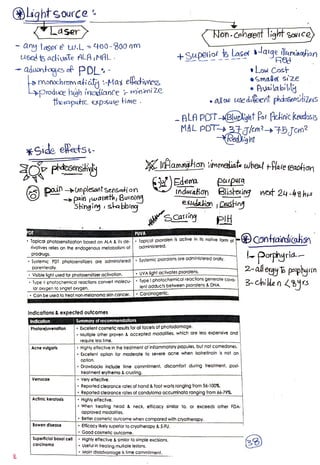 Light source :
Laser
Non-coherent light source
- any laser é W.L ~ 400-800 nm
used to activate ALA, MAL.
- advantages of PDL :-
monochromaticity : Max effectiveness
produce high irradiance : minimize
therapeutic exposure time.
+ superior to Laser
• large illumination
field
• Low Cost
• smaller size
• Availability
• allow use different photosensitizers
- ALA PDT → Blue light for Actinic keratosis
MAL PDT → 37 J/cm² → 75 J/cm²
Red light
* Side effects :-
photosensitivity
pain → unpleasant sensation
→ pain, warmth, Burning
Stinging, stabbing
Inflammation immediate wheal + flare reaction
Edema
purpura
induration
Blistering
next 24-48 hrs
exudation, Crusting
Scarring
PIH
Contraindication
1- Porphyria.
2- allergy to porphyrin
3- children < 8 yrs
PDT
PUVA
• Topical photosensitization based on ALA & its derivatives relies on the endogenous metabolism of prodrugs.
• Topical psoralen is active in its native form at administered.
• Systemic PDT photosensitizers are administered parenterally.
• Systemic psoralens are administered orally.
• Visible light used for photosensitizer activation.
• UVA light activates psoralens.
• Type II photochemical reactions convert molecular oxygen to singlet oxygen.
• Type I photochemical reactions generate covalent adducts between psoralens & DNA.
• Can be used to treat non-melanoma skin cancer.
• Carcinogenic.
Indications & expected outcomes
Indication
Summary of recommendations
Photorejuvenation
• Excellent cosmetic results for all facets of photodamage.
• Multiple other proven & accepted modalities, which are less expensive and require less time.
Acne vulgaris
• Highly effective in the treatment of inflammatory papules, but not comedones.
• Excellent option for moderate to severe acne when isotretinoin is not an option.
• Drawbacks include time commitment, discomfort during treatment, post-treatment erythema & crusting.
Verrucae
• Very effective.
• Reported clearance rates of hand & foot warts ranging from 56-100%.
• Reported clearance rates of condyloma accuminata ranging from 66-79%.
Actinic keratosis
• Highly effective.
• When treating head & neck, efficacy similar to, or exceeds other FDA-approved modalities.
• Better cosmetic outcome when compared with cryotherapy.
Bowen disease
• Efficacy likely superior to cryotherapy & 5-FU.
• Good cosmetic outcome.
Superficial basal cell carcinoma
• Highly effective & similar to simple excisions.
• Useful in treating multiple lesions.
• Main disadvantage is time commitment.
38